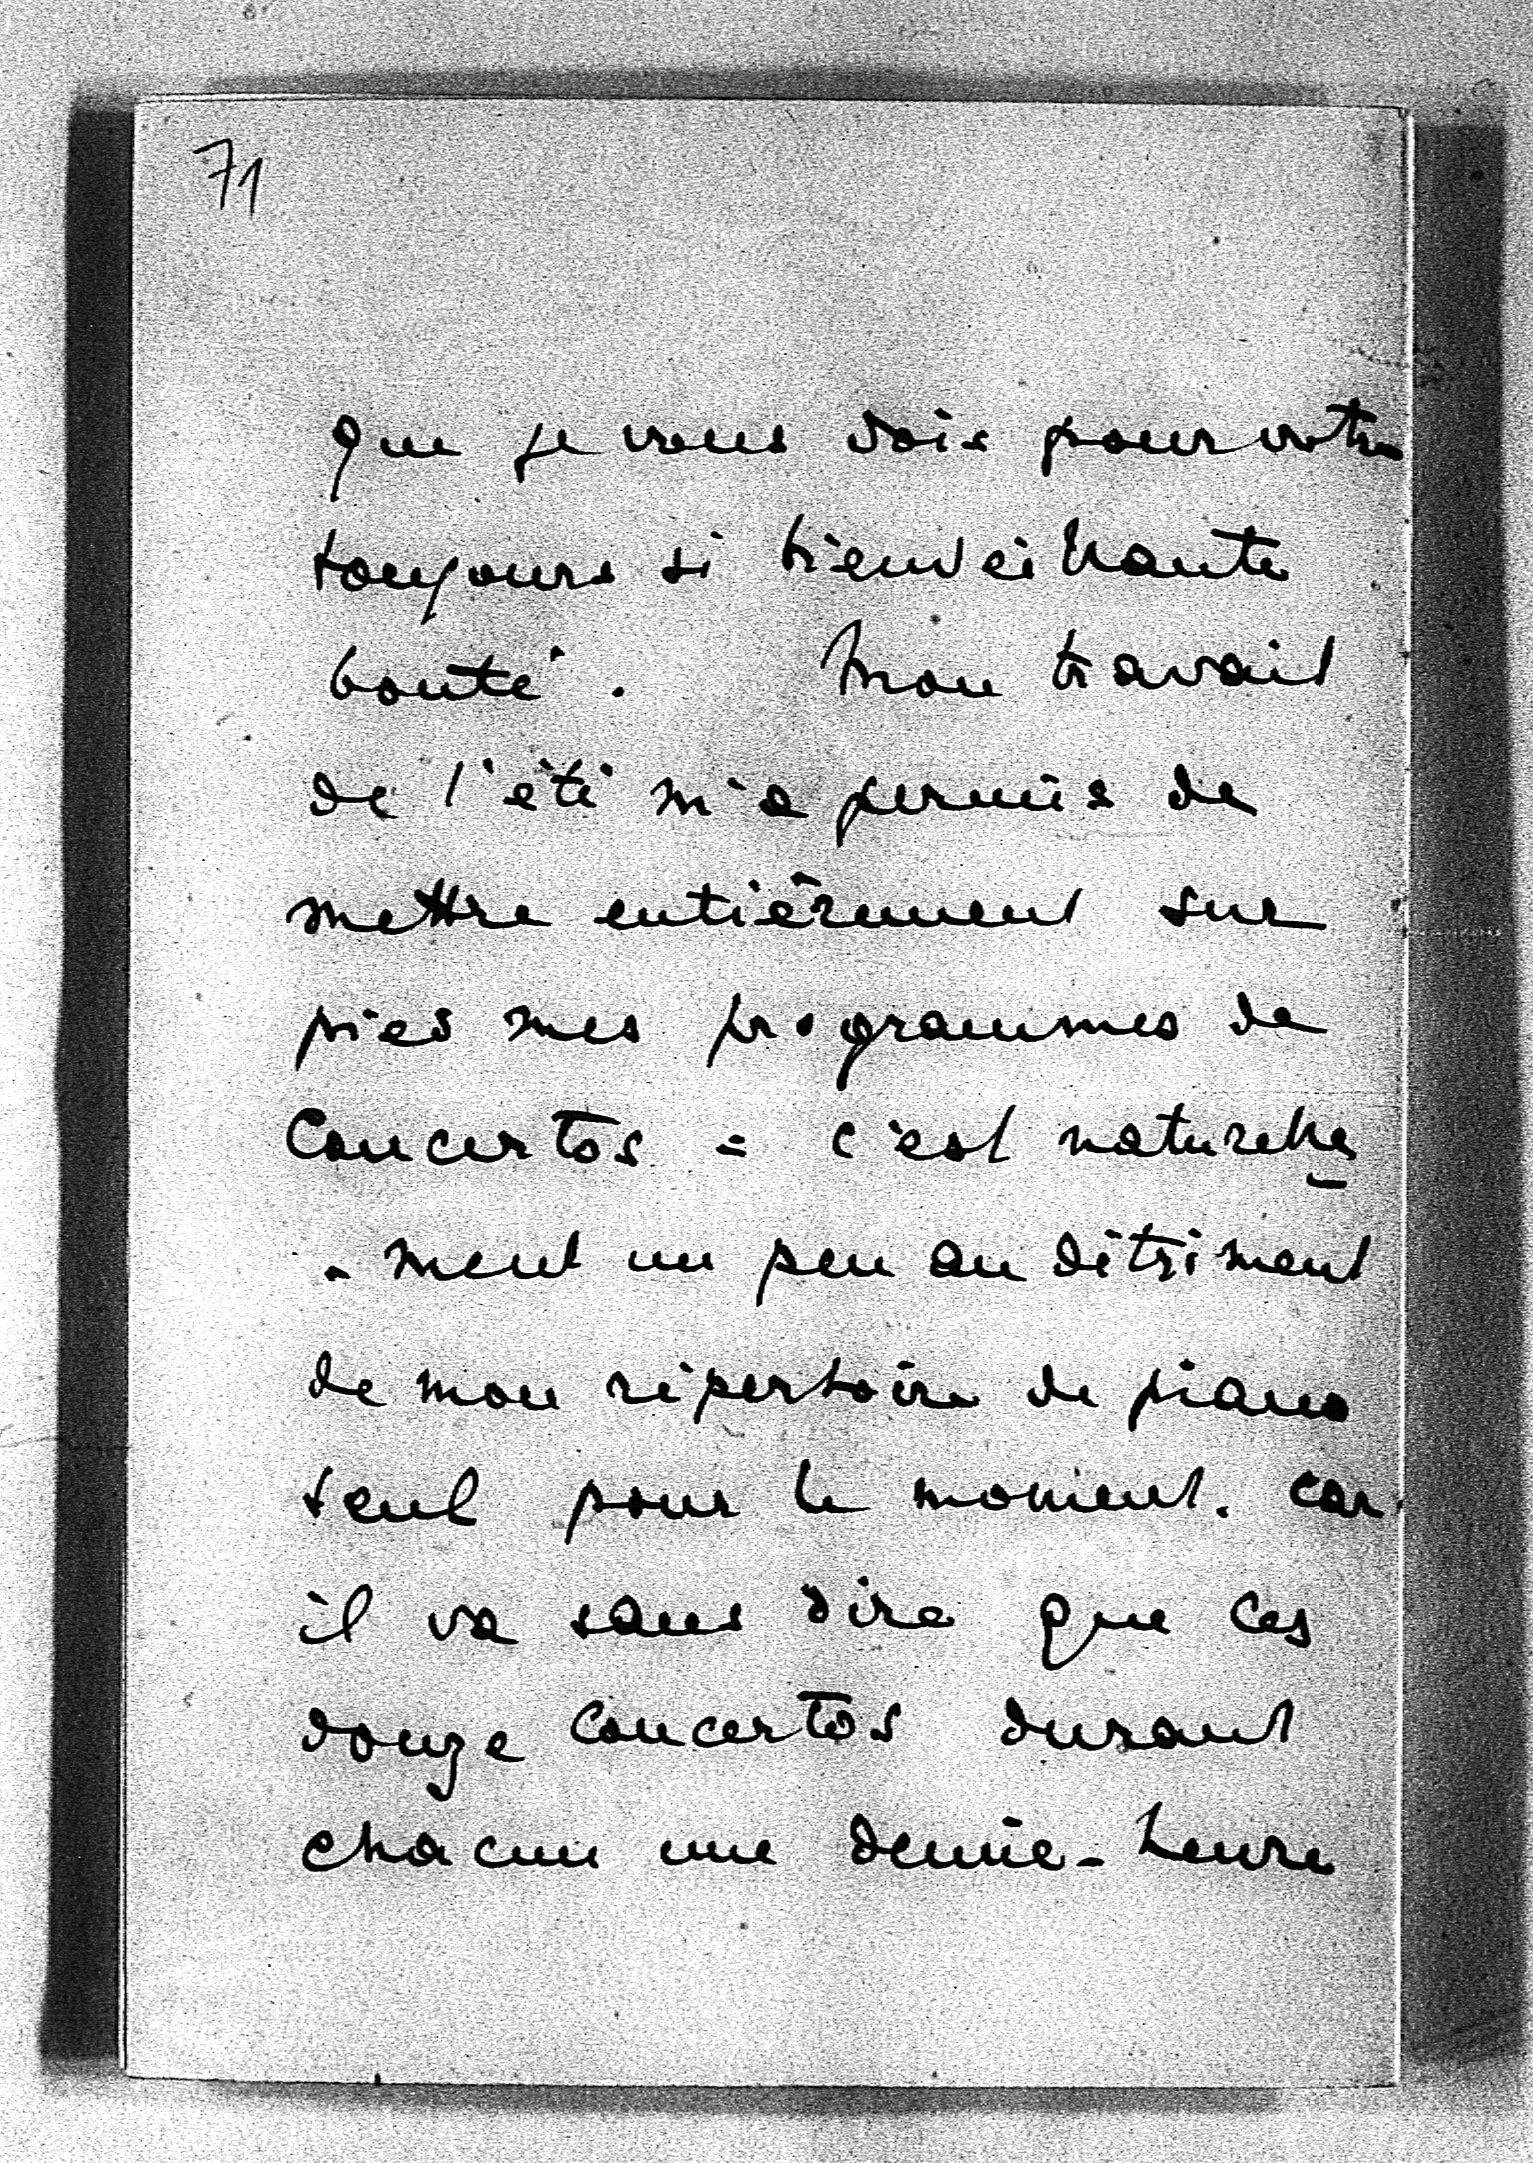 71
que je vous dois pour votre
toujours si bienveillante
bonté. Mon travail
de l'été m'a permis de
mettre entièrement sur
pied mes programmes de
Concertos = c'est naturelle
- ment un peu au détriment
de mon répertoire de piano
seul pour le moment. car
il va sans dire que ces
douze Concertos durant
chacun une demie-heure